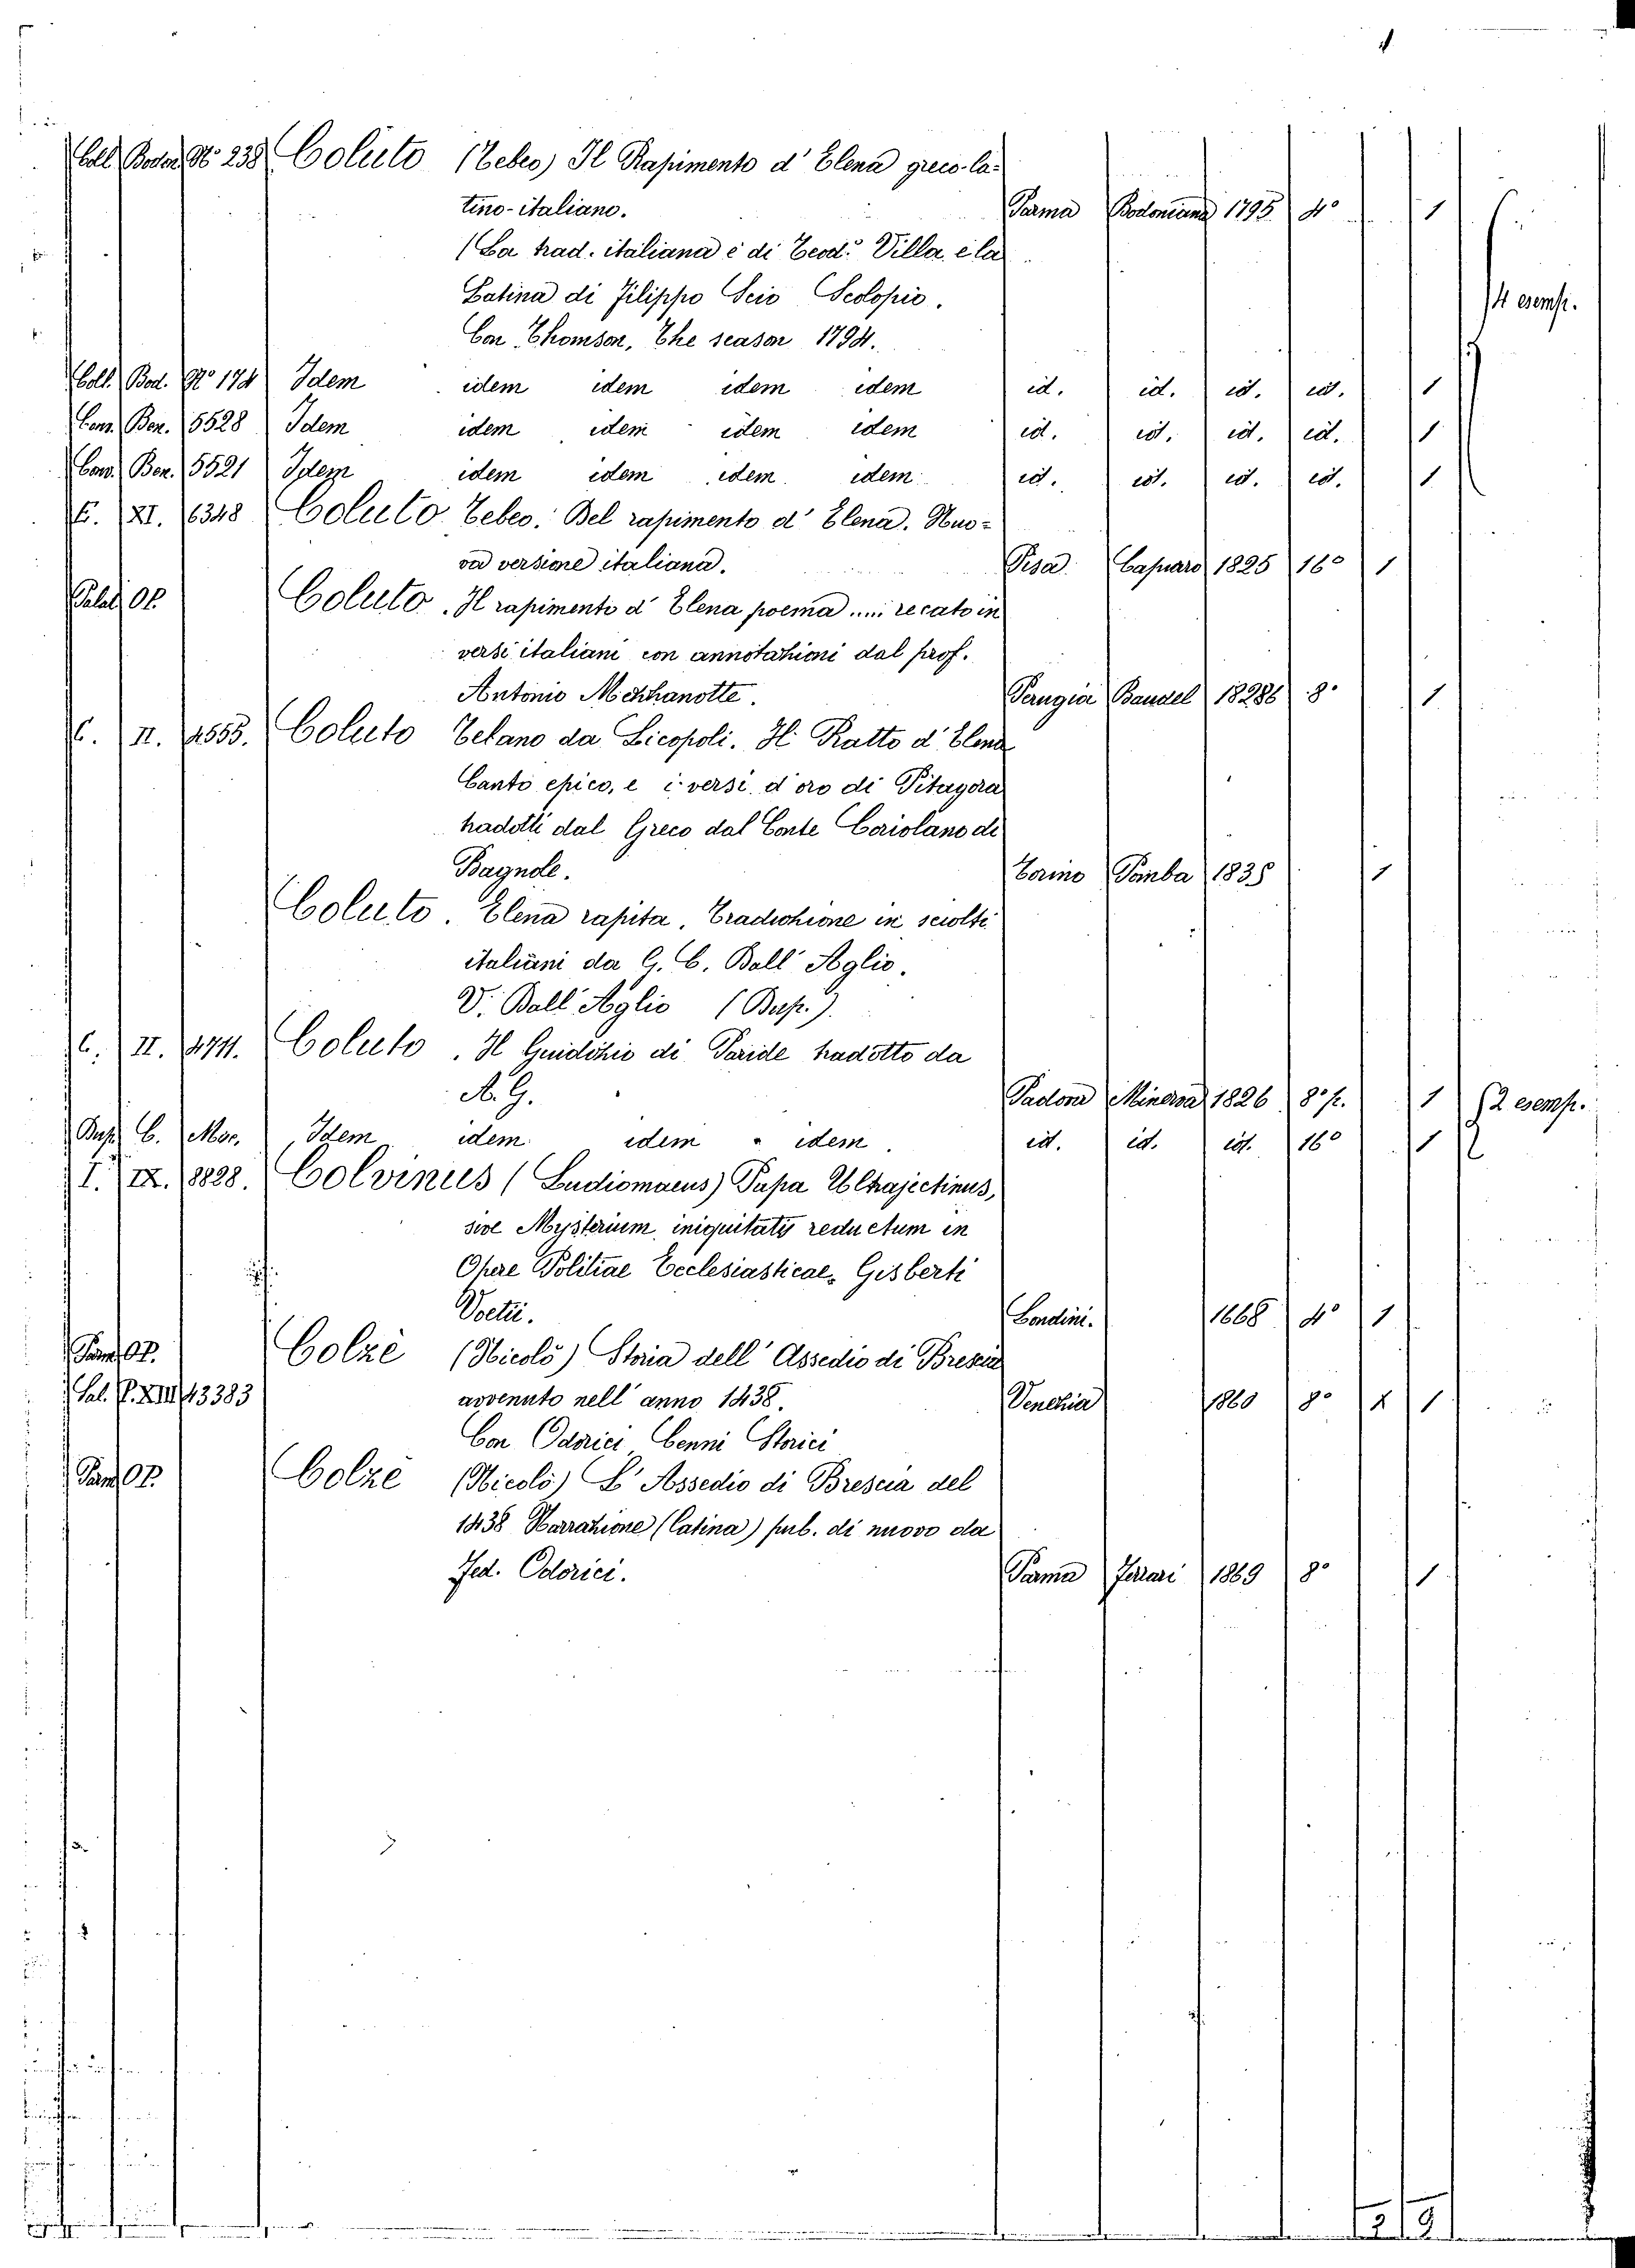 Coll. Bodon. N° 238 Coluto (Tebeo) Il Rapimento d' Elena greco-la-
tino-italiano. Parma Bodoniana 1795 4° 1
(La trad. italiana è di Teod.° Villa, e la
Latina di Filippo Scio Scolopio.
Con Thomson, The season 1794. 4 esemp.
Coll. Bod. N° 174 Idem idem idem idem idem id. id. id. id. 1
Cons. Ben. 5528 Idem idem idem idem idem id. id. id. id. 1
Cons. Ben. 5521 Idem idem idem idem idem id. id. id. id. 1
E. XI. 6348 Coluto Tebeo. Del rapimento d' Elena. Nuo-
va versione italiana. Pisa Capuaro 1825 16° 1
Palat. OP. Coluto. Il rapimento d' Elena poema .... recato in
versi italiani con annotazioni dal prof.
Antonio Mezzanotte. Perugia Baudel 8° 1
C. II. 4555. Coluto Tebano da Licopoli. Il Ratto d' Elena
Canto epico, e i versi d'oro di Pitagora
tradotti dal Greco dal Conte Coriolano di
Bagnole. Torino Pomba 1835 1
Coluto. Elena rapita, Traduzione in sciolti
italiani da G. C. Dall' Aglio.
V. Dall' Aglio (Dep.).
C. II. 4711. Coluto. Il Giudizio di Paride tradotto da
A. G. Padova Minerva 1826 8° p. 1 2 esemp.
C. Mor. Idem idem idem " idem id. id. id. 16° 1
I. IX. 8828. Colvinus (Ludiomaeus) Papa Ultrajectinus,
sive Mysterium iniquitatis reductum in
Opere Politiae Ecclesiasticae, Gisberti
Voetii. Londini. 1668 4° 1
Parm. OP. Colzè (Nicolò) Storia dell' Assedio di Brescia
Sal. P. XIII 43383 avvenuto nell' anno 1438. Venezia 1860 8° X 1
Con Odorici, Cenni Storici
Parm. OP. Colzè (Nicolò) L' Assedio di Brescia del
1438 Narrazione (latina) pub. di nuovo da
Fed. Odorici. Parma Ferrari 1869 8° 1